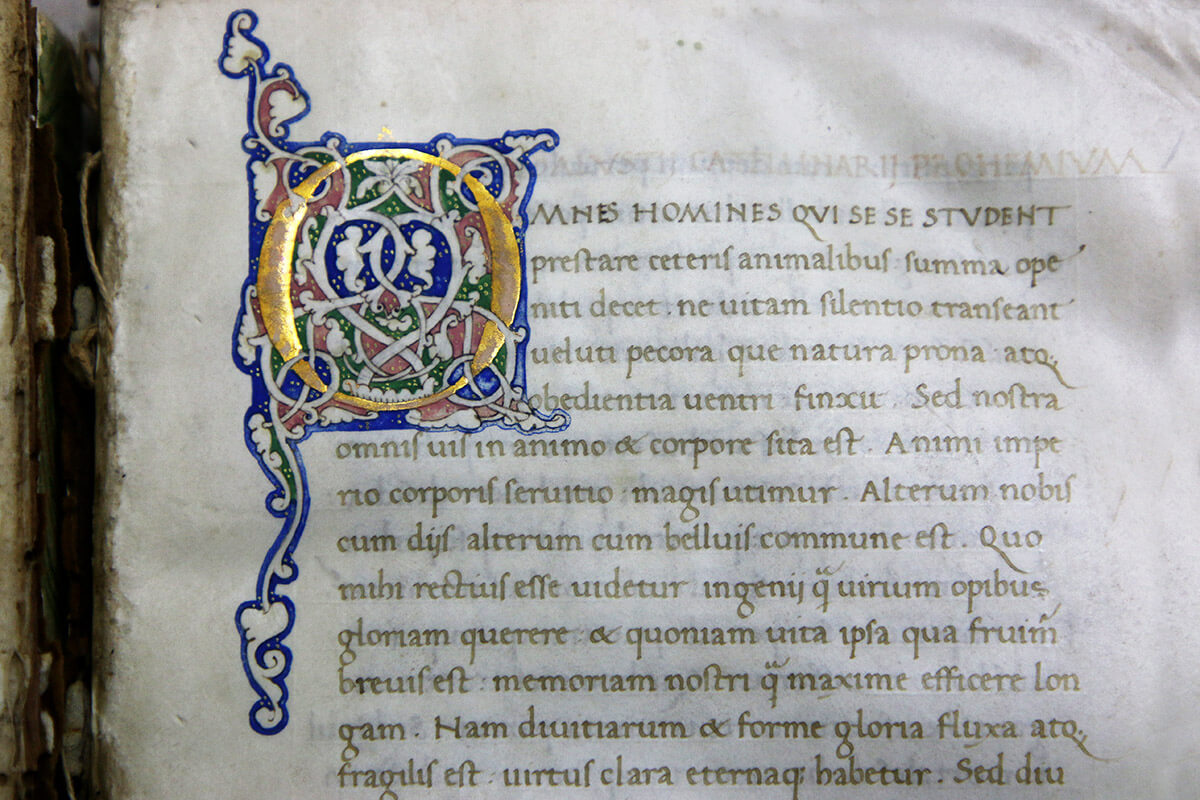 PROHEMIVM
OMNES HOMINES QVI SE SE STVDENT
prestare ceteris animalibus summa ope
niti decet. ne uitam silentio transeant
ueluti pecora que natura prona atq;
obedientia uentri finxit. Sed nostra
omnis uis in animo & corpore sita est. Animi impe
rio corporis seruitio magis utimur. Alterum nobis
cum dijs alterum cum belluis commune est. Quo
mihi rectius esse uidetur ingenij q̃ uirium opibus
gloriam querere & quoniam uita ipsa qua fruim̃
breuis est: memoriam nostri q̃ maxime efficere lon
gam. Nam diuitiarum & forme gloria fluxa atq;
fragilis est: uirtus clara eternaq; habetur. Sed diu